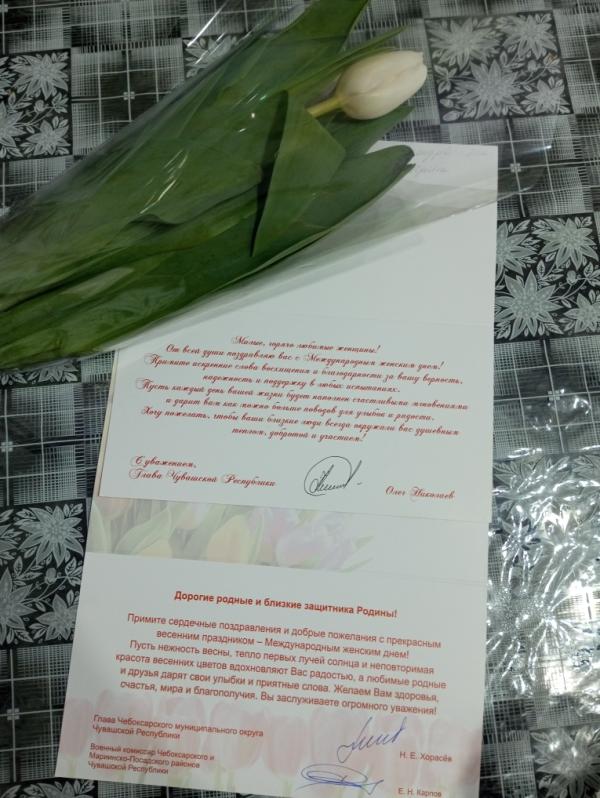 Милые, горячо любимые женщины!
От всей души поздравляю вас с Международным женским днем!
Примите искренние слова восхищения и благодарности за вашу верность,
надежность и поддержку в любых испытаниях.
Пусть каждый день вашей жизни будет наполнен счастливыми мгновениями
и дарит вам как можно больше поводов для улыбки и радости.
Хочу пожелать, чтобы ваши близкие люди всегда окружали вас душевным
теплом, добротой и участием!
С уважением,
Глава Чувашской Республики
Олег Николаев
Дорогие родные и близкие защитника Родины!
Примите сердечные поздравления и добрые пожелания с прекрасным
весенним праздником – Международным женским днем!
Пусть нежность весны, тепло первых лучей солнца и неповторимая
красота весенних цветов вдохновляют Вас радостью, а любимые родные
и друзья дарят свои улыбки и приятные слова. Желаем Вам здоровья,
счастья, мира и благополучия. Вы заслуживаете огромного уважения!
Глава Чебоксарского муниципального округа
Чувашской Республики
Н. Е. Хорасёв
Военный комиссар Чебоксарского и
Мариинско-Посадского районов
Чувашской Республики
Е. Н. Карпов